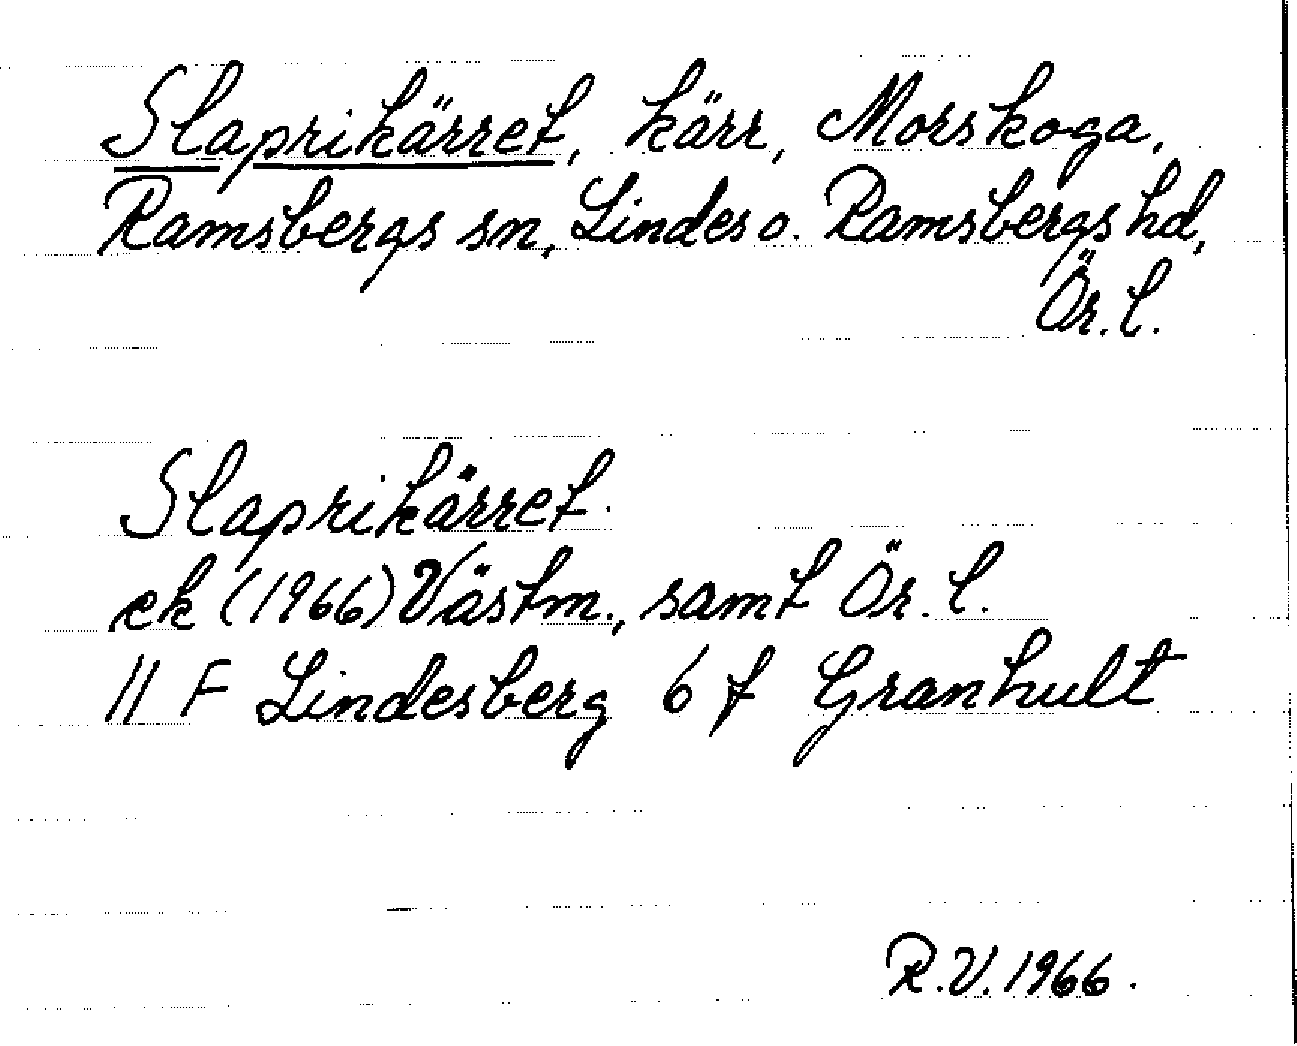 Slaprikärret, kärr, Morskoga,
Ramsbergs sn, Lindes o. Ramsbergs hd,
Ör. l.
Slaprikärret.
ek (1966) Västm., samt Ör. l.
11 F Lindesberg 6 f Granhult
R.V. 1966.